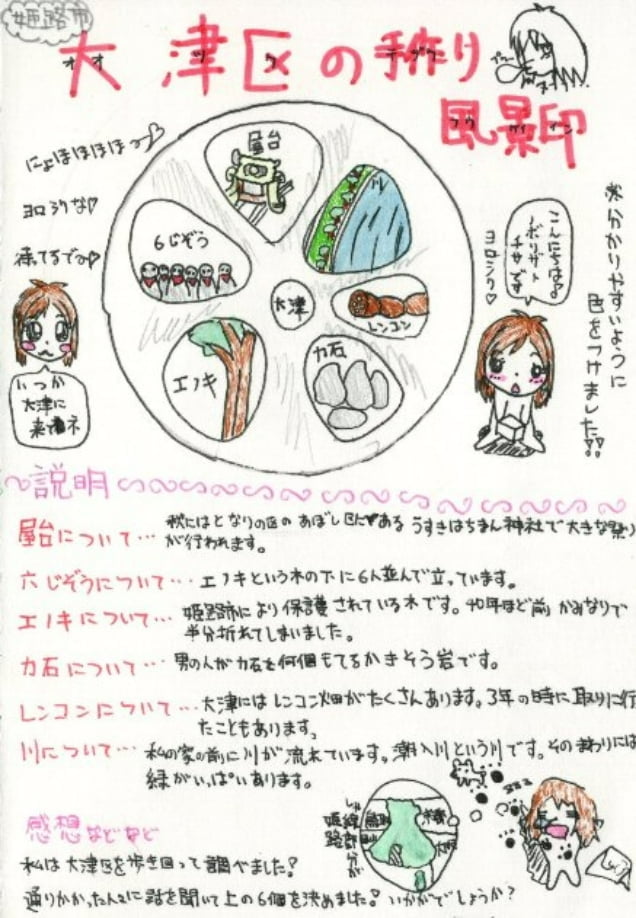 姫路市
大津区の手作り
オオ ツ ク テヅク
風景印
フウケイイン
にょほほほほほっ♡
ヨロシクな♡
待ってるでっ♡
いつか
大津に
来てネ
屋台
川
6じぞう
大津
レンコン
エノキ
力石
こんにちは♪
チサです
ヨロシク♡
※分かりやすいように
色をつけました!!
〜説明
屋台について… 秋にはとなりの区のあぼし区にある うすきはちまん神社で大きな祭り
が行われます。
六じぞうについて… エノキという木の下に6人並んで立っています。
エノキについて… 姫路市により保護されている木です。 年ほど前 かみなりで
半分折れてしまいました。
力石について… 男の人が力石を何個もてるかきそう岩です。
レンコンについて… 大津にはレンコン畑がたくさんあります。3年の時に取りに行っ
たこともあります。
川について… 私の家の前に川が流れています。潮入川という川です。そのまわりには
緑がいっぱいあります。
感想などなど
私は大津区を歩き回って調べました!
通りかかった人に話を聞いて上の6個を決めました! いかがでしょうか?
鳥取
岡山
京都
大阪
姫路
線部分が
zzz